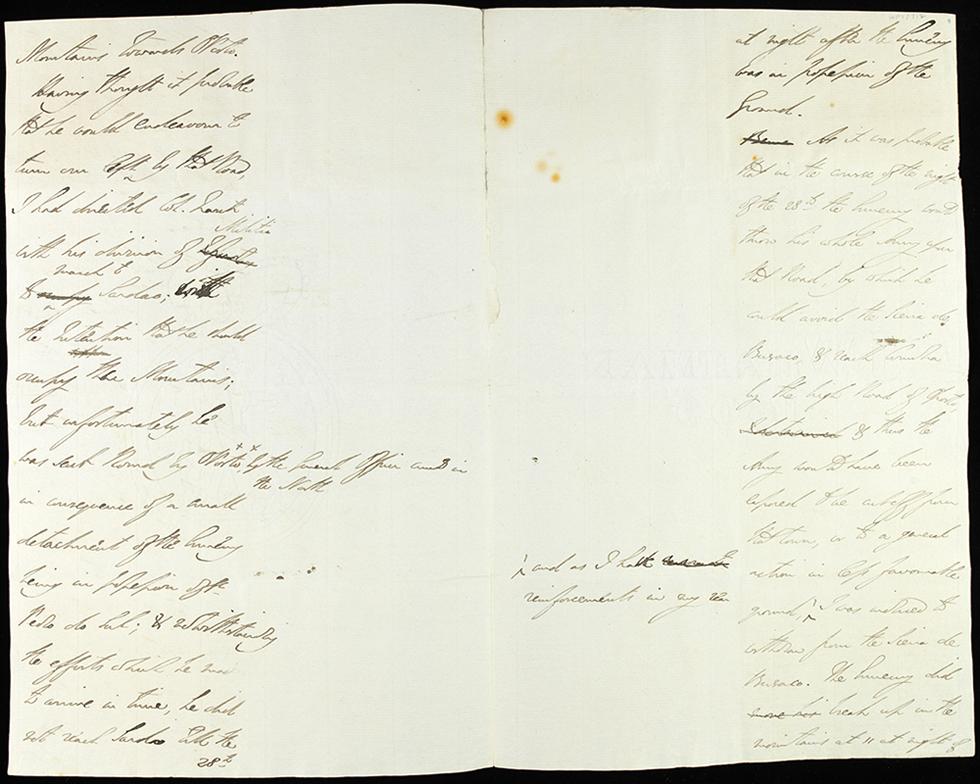 Mountains towards Oporto.
Having thought it probable
that he would endeavour to
turn our left by that Road,
I had directed Col. Trant
Militia
with his division of
march to
to occupy Sardao; with
the Intention that he should
occupy these Mountains;
but unfortunately he
was sent Round by Oporto, by the General Officer commg in
the North
in consequence of a small
detachment of the Enemy
being in possession of
Pedro do Sul; & notwithstanding
the efforts which he made
to arrive in time, he did
not reach Sardao till the
28th
at night after the Enemy
was in possession of the
Ground.
As it was probable
that in the course of the night
of the 28th the Enemy would
throw his whole Army upon
that Road, by which he
could avoid the Sierra de
Busaco, & reach Coimbra
by the high Road of Oporto
& thus the
Army would have been
exposed to be cut off from
that town, or to a general
action in less favourable
ground, I was induced to
withdraw from the Sierra de
Busaco. The Enemy did
move his break up in the
mountains at 11 at night of
and as I had
reinforcements in my rear